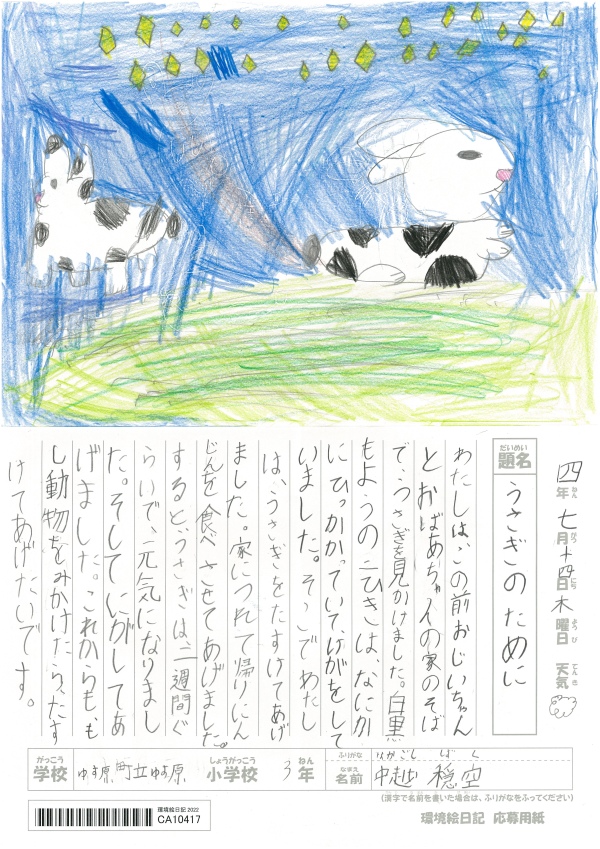 四年七月十四日木曜日 天気
ねん がつ にち ようび てんき
だいめい
題名 うさぎのために
わたしは、この前おじいちゃん
とおばあちゃんの家のそば
で、うさぎを見かけました。白黒
もようの二ひきは、なにか
にひっかかっていて、けがをして
いました。そこでわたし
は、うさぎをたすけてあげ
ました。家につれて帰りにん
じんを食べさせてあげました。
すると、うさぎは二週間ぐ
らいで、元気になりまし
た。そしてにがしてあ
げました。これからもも
し動物をみかけたら、たす
けてあげたいです。
がっこう しょうがっこう ねん ふりがな
学校 ゆす原町立ゆす原 小学校 3年
なまえ
名前 中越 穏空
(漢字で名前を書いた場合は、ふりがなをふってください)
環境絵日記 2022
CA10417
環境絵日記 応募用紙